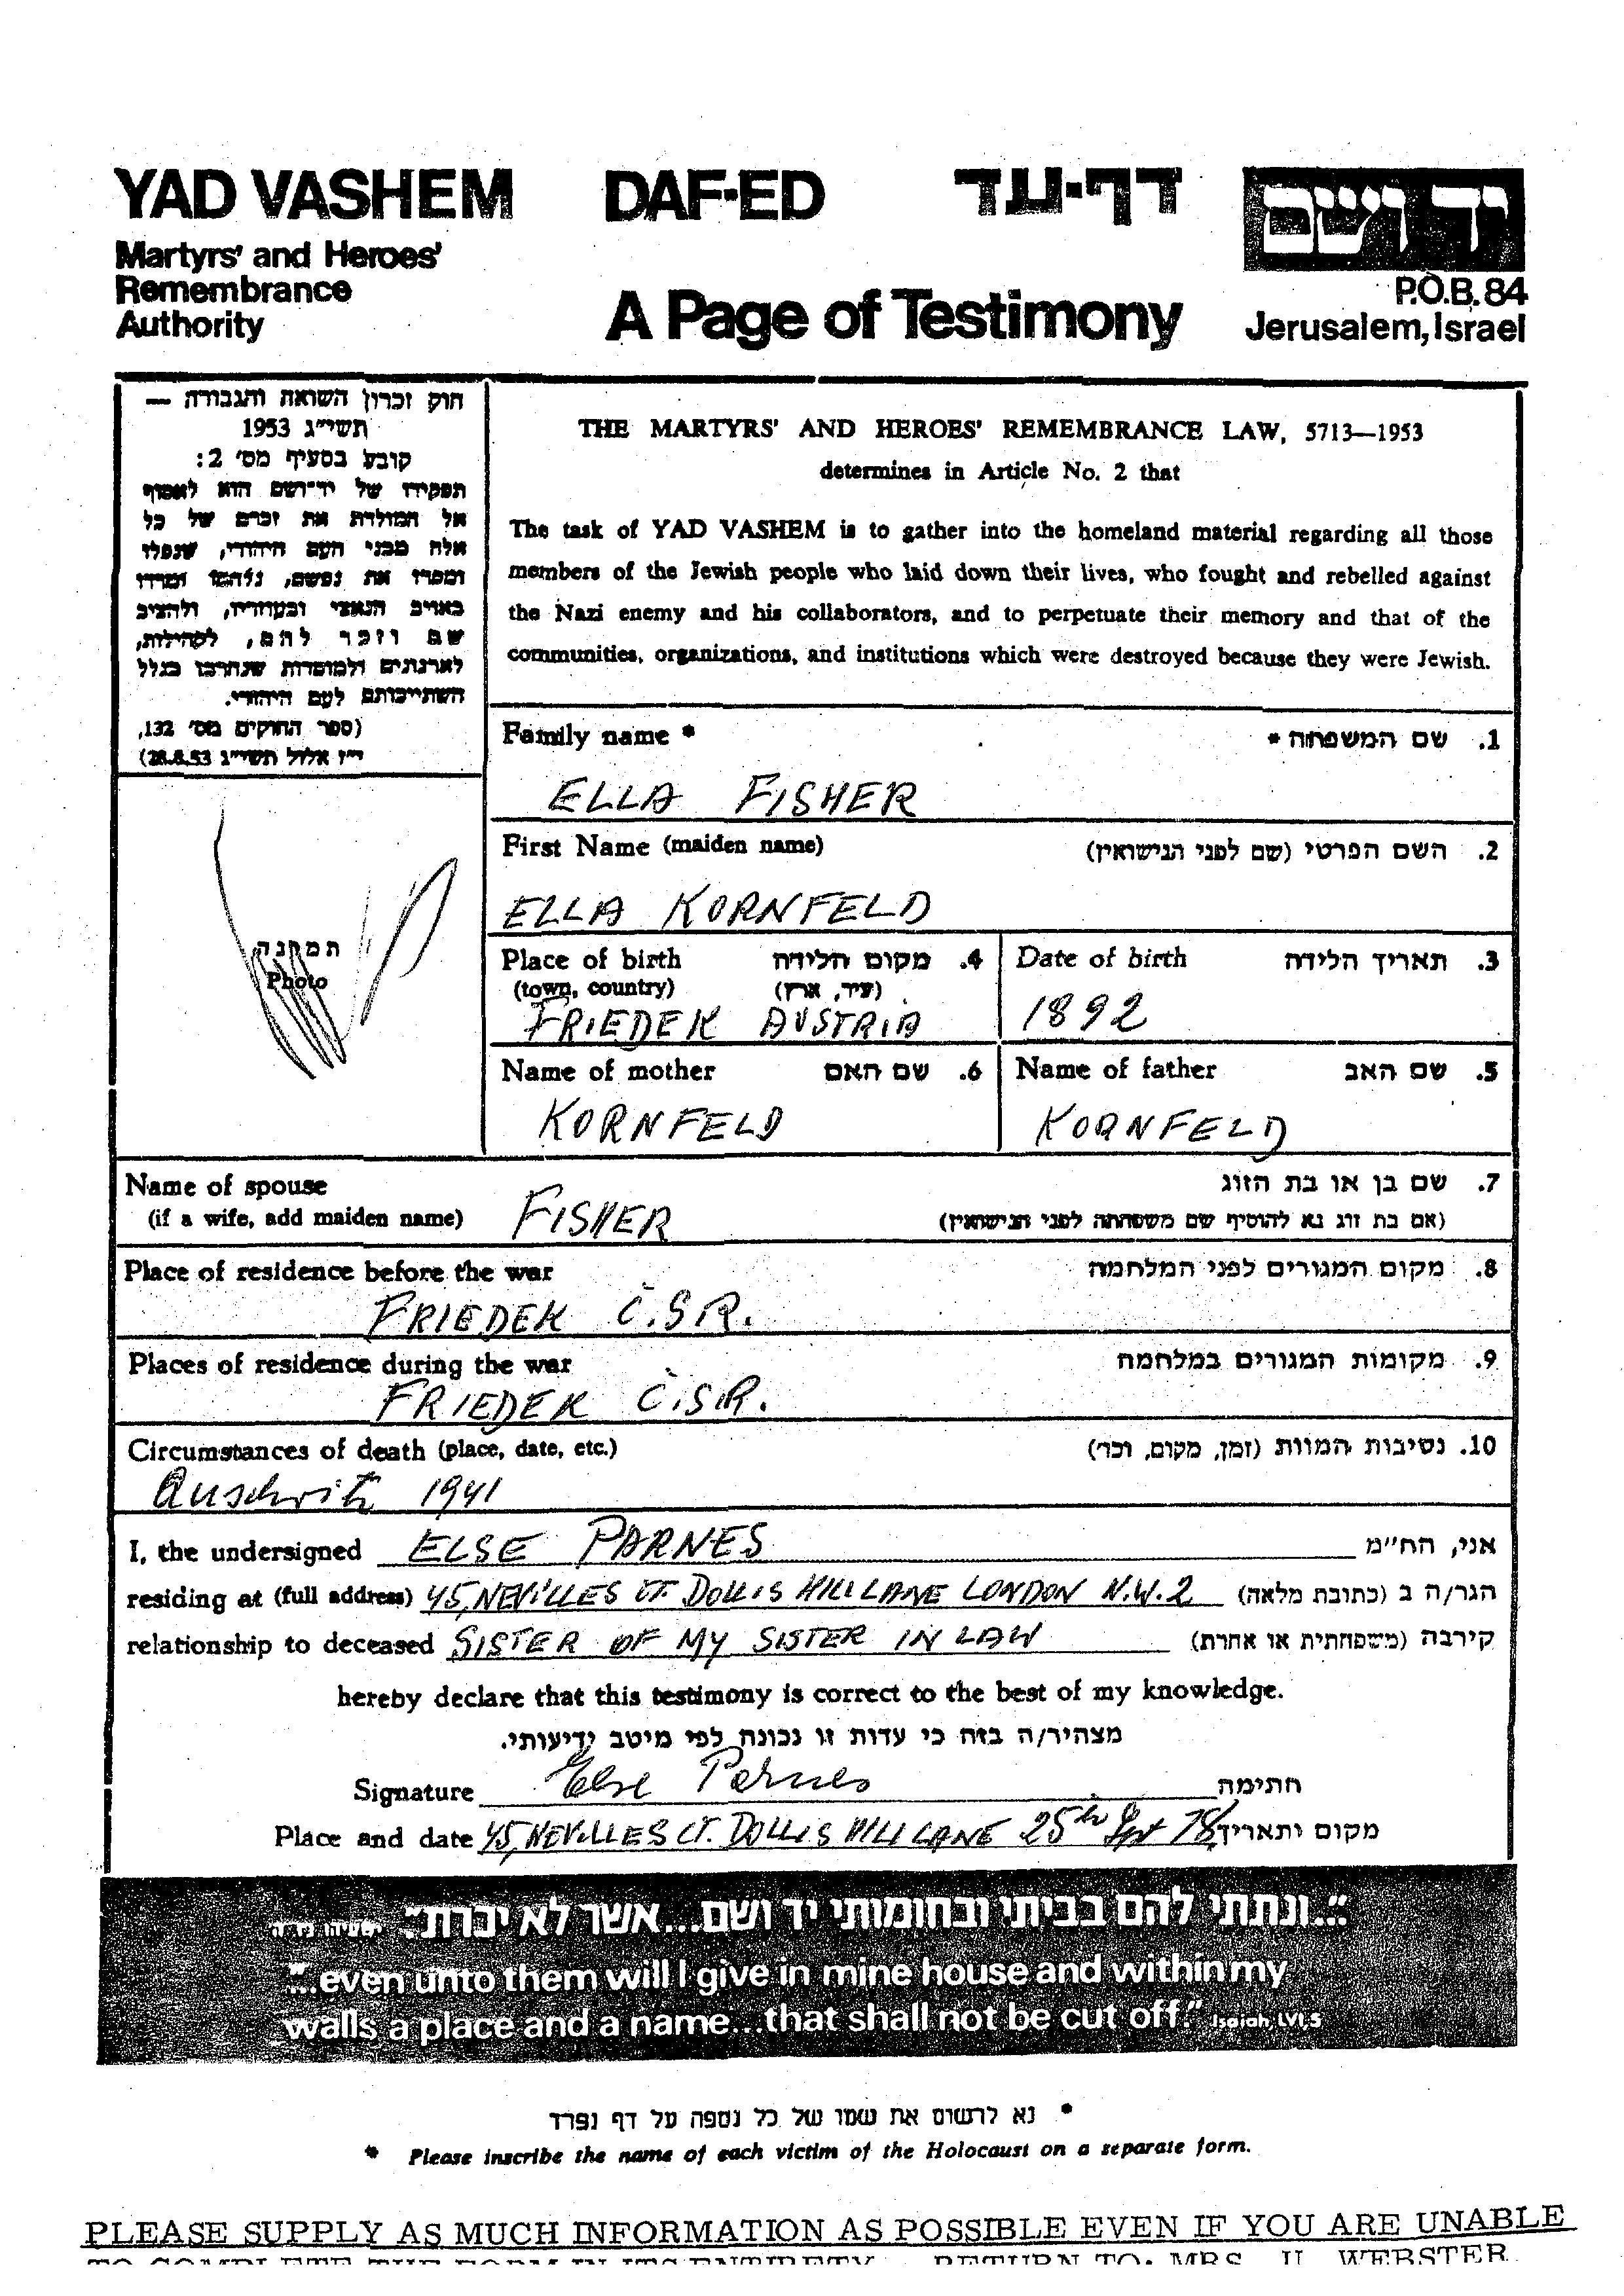 YAD VASHEM DAF-ED דף-עד יד ושם
Martyrs' and Heroes'
Remembrance
Authority
A Page of Testimony
P.O.B. 84
Jerusalem, Israel
חוק זכרון השואה והגבורה —
תשי״ג 1953
קובע בסעיף מס׳ 2:
תפקידו של יד־ושם הוא לאסוף
אל המולדת את זכרם של כל
אלה מבני העם היהודי, שנפלו
ומסרו את נפשם, נלחמו ומרדו
באויב הנאצי ובעוזריו, ולהציב
שם וזכר להם, לקהילות,
לארגונים ולמוסדות שנחרבו בגלל
השתייכותם לעם היהודי.
(ספר החוקים מס׳ 132,
י״ז אלול תשי״ג 28.8.53)
THE MARTYRS' AND HEROES' REMEMBRANCE LAW, 5713—1953
determines in Article No. 2 that
The task of YAD VASHEM is to gather into the homeland material regarding all those
members of the Jewish people who laid down their lives, who fought and rebelled against
the Nazi enemy and his collaborators, and to perpetuate their memory and that of the
communities, organizations, and institutions which were destroyed because they were Jewish.
Family name * 1. שם המשפחה *
ELLA FISHER
First Name (maiden name) 2. השם הפרטי (שם לפני הנישואין)
ELLA KORNFELD
תמונה
Photo
Place of birth 4. מקום הלידה
(town, country) (עיר, ארץ)
FRIEDEK AUSTRIA
Date of birth 3. תאריך הלידה
1892
Name of mother 6. שם האם
KORNFELD
Name of father 5. שם האב
KORNFELD
Name of spouse 7. שם בן או בת הזוג
(if a wife, add maiden name) FISHER (אם בת זוג נא להוסיף שם משפחתה לפני הנישואין)
Place of residence before the war 8. מקום המגורים לפני המלחמה
FRIEDEK Č.S.R.
Places of residence during the war 9. מקומות המגורים במלחמה
FRIEDEK Č.S.R.
Circumstances of death (place, date, etc.) 10. נסיבות המוות (זמן, מקום, וכו׳)
Auschwitz 1941
I, the undersigned ELSE PARNES אני, הח״מ
residing at (full address) 45, NEVILLES CT. DOLLIS HILL LANE LONDON N.W.2 הגר/ה ב (כתובת מלאה)
relationship to deceased SISTER OF MY SISTER IN LAW קירבה (משפחתית או אחרת)
hereby declare that this testimony is correct to the best of my knowledge.
מצהיר/ה בזה כי עדות זו נכונה לפי מיטב ידיעותי.
Signature Else Parnes חתימה
Place and date 45, NEVILLES CT. DOLLIS HILL LANE 25th Sept 78 מקום ותאריך
״...ונתתי להם בביתי ובחומותי יד ושם...אשר לא יכרת״. ישעיהו נו,ה
"...even unto them will I give in mine house and within my
walls a place and a name...that shall not be cut off." Isaiah, LVI,5
* נא לרשום את שמו של כל נספה על דף נפרד
* Please inscribe the name of each victim of the Holocaust on a separate form.
PLEASE SUPPLY AS MUCH INFORMATION AS POSSIBLE EVEN IF YOU ARE UNABLE
TO COMPLETE THE FORM IN ITS ENTIRETY. RETURN TO: MRS. U. WEBSTER